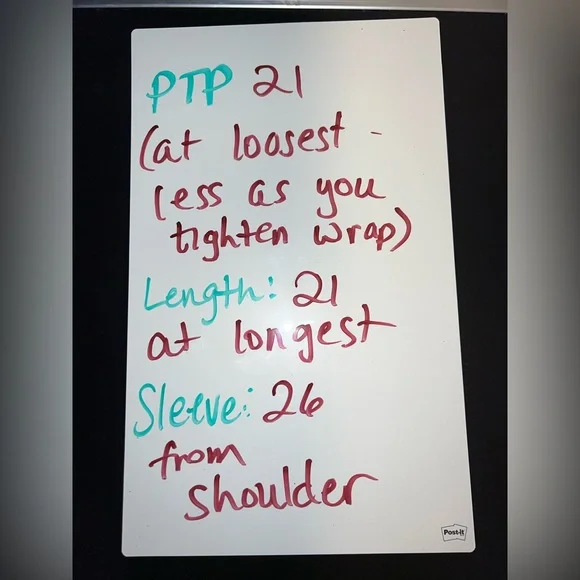 PTP 21
(at loosest -
less as you
tighten wrap)
Length: 21
at longest
Sleeve: 26
from
shoulder
Post-it